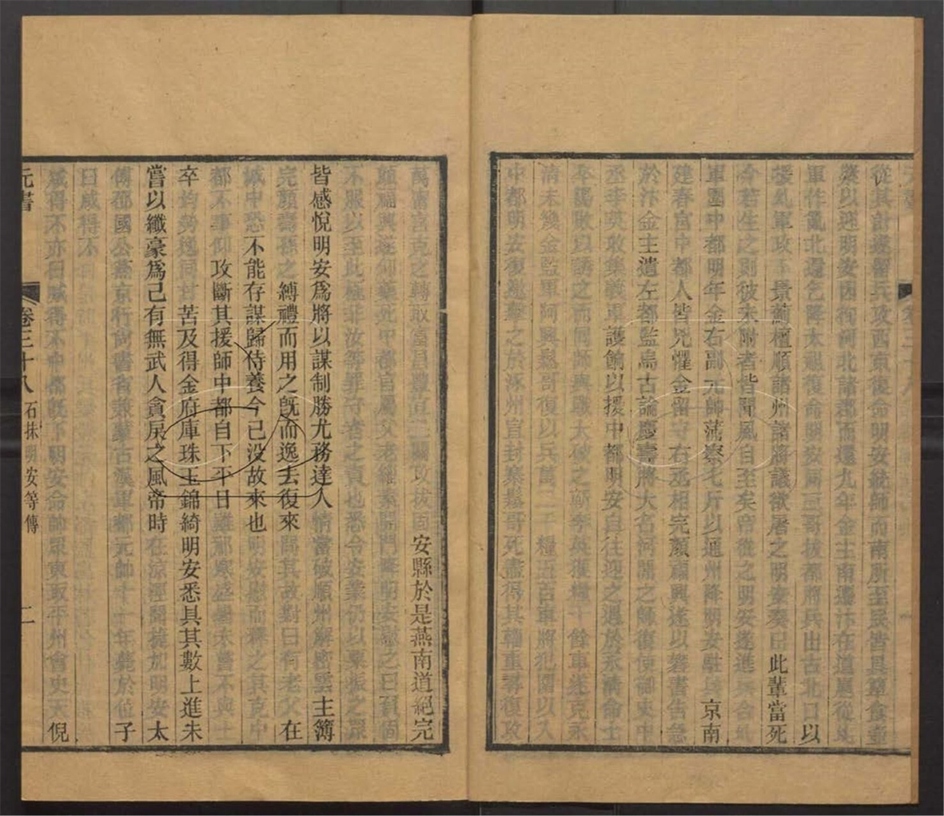 從其計遂留兵攻西京復命明安統師而南所至民皆具簞食壺
漿以迎明安因徇河北諸郡而還九年金主南遷汴在道扈從
軍作亂北還乞降太祖復命明安與三哥拔都將兵出古北口以
軍攻下景薊檀順諸州諸將議欲屠之明安奏曰此輩當死
今若生之則彼未附者皆聞風自至矣帝從之明安遂進兵合
軍圍中都明年金右副元帥蒲察七斤以通州降明安駐兵京南
建春宮中都人皆兇懼金留守右丞相完顏福興遂以礬書告急
於汴金主遣左都監烏古論慶壽將大名河間之師復使御史中
丞李英收集義軍護餉以援中都明安自往逆之遇於永清命士
以誘之而回師與戰大破之李英獲糧千餘車遂克永
清未幾金監軍阿興鬆哥復以兵萬二千糧五百車將犯圍以入
中都明安復邀擊之於涿州宣封寨鬆哥死盡得其輜重尋復攻
萬寧宮克之轉取富昌豐宜二關攻拔固安縣於是燕南道絕完
顏福興遂仰藥死中都官屬父老緇素開門降明安慰之曰負固
不服以至此極非汝等罪守者之責也悉令安業仍以粟振之眾
皆感悅明安爲將以謀制勝尤務達人情當破順州解密雲主簿
完顏壽孫之縛禮而用之既而逸去復來問其故對曰有老父在
城中恐不能存謀歸侍養今已没故來也明安慰而釋之其克中
都不事仰攻斷其援師中都自下平日雖邪寒盛暑未嘗不與士
卒均勞逸同甘苦及得金府庫珠玉錦綺明安悉具其數上進未
嘗以纖豪爲己有無武人貪戾之風帝時在涼涇聞捷加明安太
傅邵國公燕京行尚書省兼蒙古漢軍都元帥十一年薨於位子
曰咸得不
咸得不亦曰威得不中都既下明安命帥眾東取平州會史天倪
元書
卷三十八
石抹明安等傳
二